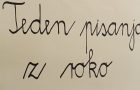 Teden pisanja
z roko